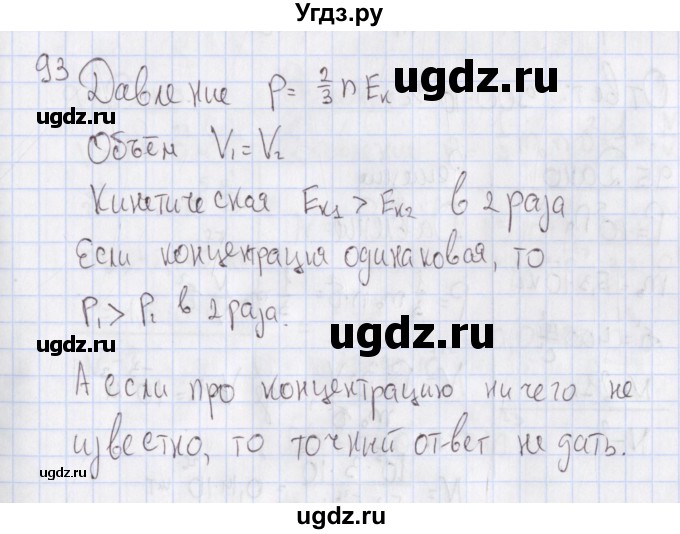 Угдз.ру
93 Давление P = 2/3 n Eк
ugdz.ru
ugdz.ru
Объём V₁ = V₂
Кинетическая Eк₁ > Eк₂ в 2 раза
Если концентрация одинаковая, то
P₁ > P₂ в 2 раза.
ugdz.ru
ugdz.ru
А если про концентрацию ничего не
известно, то точный ответ не дать.
ugdz.ru
ugdz.ru
ugdz.ru